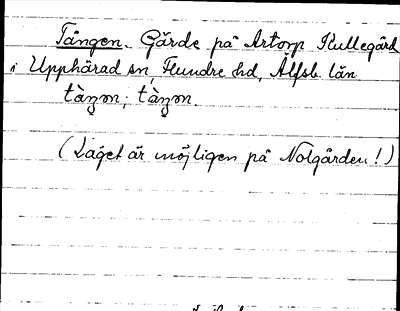 Tången. Gärde på Artorp Kullegård
i Upphärad sn Flundre hd, Älfsb. län
tàŋən; tàŋən.
(Läget är möjligen på Nolgården!)